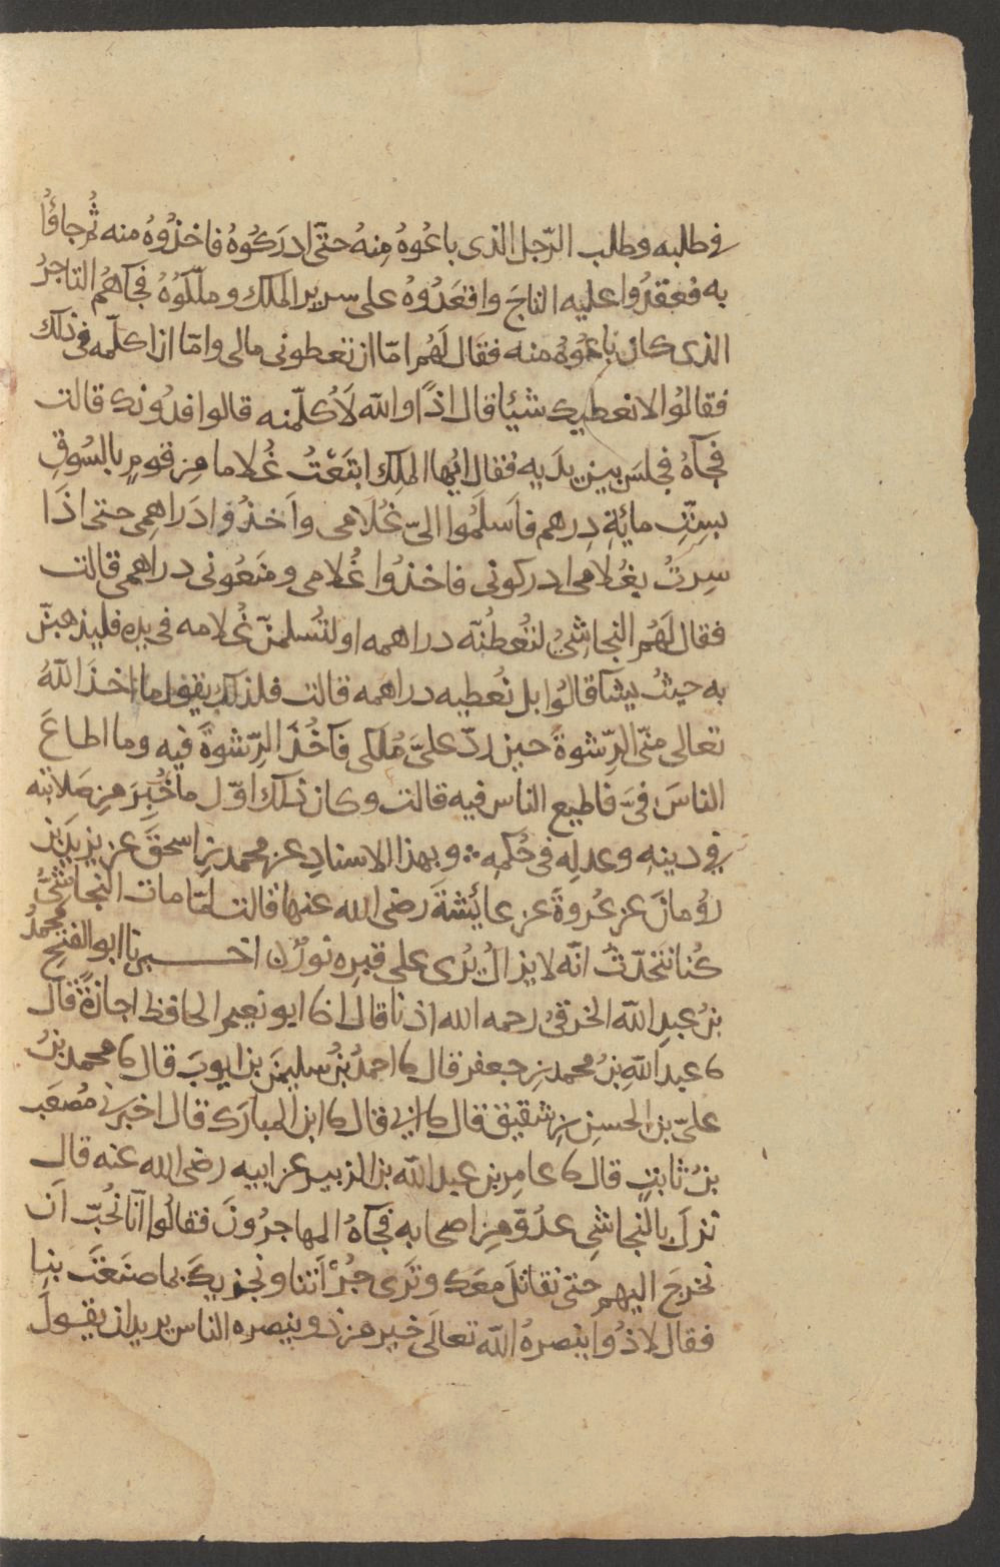 في طلبه وطلب الرّجل الذى باعُوهُ مِنهُ حتّى ادرَكُوهُ فاخذُوهُ منه ثُم جاؤُا
به فعقدُوا عليه التاجَ واقعَدُوهُ على سرير الملك وملّكُوهُ فجآهُم التاجرُ
الذى كان باعُوهُ منه فقال لَهُم امّا ان تعطونى مالى وامّا ان اكلّمه فى ذلك
فقالُوا لا نعطيك شيئا قال اذًا والله لاُكلّمنه قالوا فدُونك قالت
فجآهُ فجلسَ بين يدَيه فقال ايُّها الملك ابتَعْتُ غُلاما مِن قومٍ بالسُوقِ
بسِتّ مائةِ دِرهم فاَسلَمُوا الىّ غُلامى واَخذُوا دَراهِمى حتى اذَا
سِرتُ بغُلامى ادركونى فاخذُوا غُلامى ومنَعُونى دراهمى قالت
فقال لَهُم النجاشىُ لتُعطُنّه دراهمه او لتُسلمنّ غُلامه فى يده فليذهبنّ
به حيثُ يشآ قالُوا بل نُعطيه دراهمه قالت فلذلك يقول ما اخذَ اللهُ
تعالى منّى الرِّشوةَ حين ردّ علىَّ مُلكى فآخُذَ الرِّشوةَ فيه وما اطاعَ
الناسَ فىَّ فاطيع الناس فيه قالت وكان ذلك اوّل ما خُبِرَ مِن صَلابته
في دينهِ وعدلِه فى حُكمِه ؞ وبهذا الاسنادِ عن محمد بنِ اسحقَ عن يزيدَ بن
رُومانَ عن عُروةَ عن عائِشةَ رضى الله عنها قالت لمّا مات النجاشىُّ
كُنا نتحدّثُ انّه لا يزالُ يُرى على قبرِه نورٌ اخـــبرنا ابو الفتحِ محمدُ
بنُ عبدِ اللّه الخرقىُ رحمه الله اذنا قال انا ابو نعيم الحافظ اجازةً قال
نا عبد اللّهِ بنُ محمد بنِ جعفر قال نا احمدُ بنُ سليمنَ بن ايوبَ قال نا محمد بنُ
علىّ بن الحسنِ بنِ شقيق قال نا ابي قال نا ابن المبارَك قال اخبرنى مُصعَب
بنُ ثابتٍ قال نا عامِر بن عبد اللّه بن الزبير عن ابيه رضى الله عنه قال
نزلَ بالنجاشِى عدُوّ مِن اصحابه فجآهُ المهاجرُونَ فقالُوا انّا نُحبّ اَن
نخرجَ اليهم حتى نقاتلَ معَك وتَرى جُرْأتنا ونجزيكَ بما صنَعْتَ بنا
فقال لا ذُو ينصرهُ اللّه تعالَى خير من ذو ينصره الناس يريد ان يقولَ